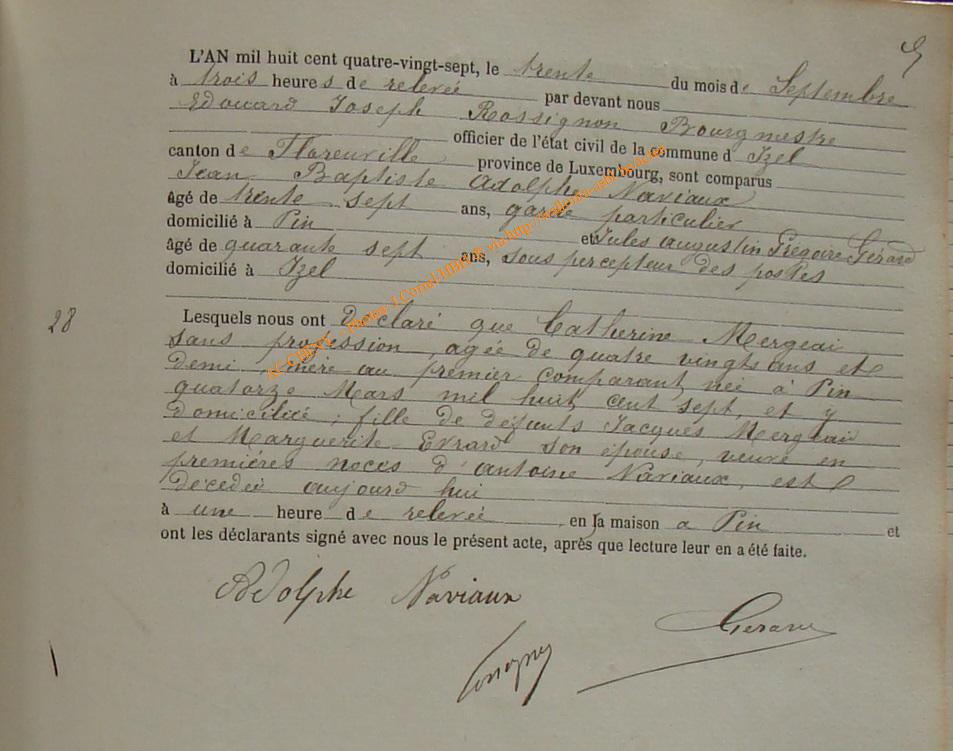 L'AN mil huit cent quatre-vingt-sept, le trente du mois de Septembre
à trois heures de relevée par devant nous
Edouard Joseph Rossignon Bourgmestre
officier de l'état civil de la commune d'Izel
canton de Florenville province de Luxembourg, sont comparus
Jean Baptiste Adolphe Naviaux
âgé de trente sept ans, garde particulier
domicilié à Pin et Jules Augustin Grégoire Gérard
âgé de quarante sept ans, sous percepteur des postes
domicilié à Izel
28
Lesquels nous ont déclaré que Catherine Mergeai
sans profession, agée de quatre vingts ans et
demi, mère au premier comparant, née à Pin
quatorze Mars mil huit cent sept, et y
domiciliée ; fille de défunts Jacques Mergeai
et Marguerite Evrard son épouse, veuve en
premières noces d'Antoine Naviaux, est
décédée aujourd'hui
à une heure de relevée, en sa maison à Pin et
ont les déclarants signé avec nous le présent acte, après que lecture leur en a été faite.
Adolphe Naviaux
Gerard